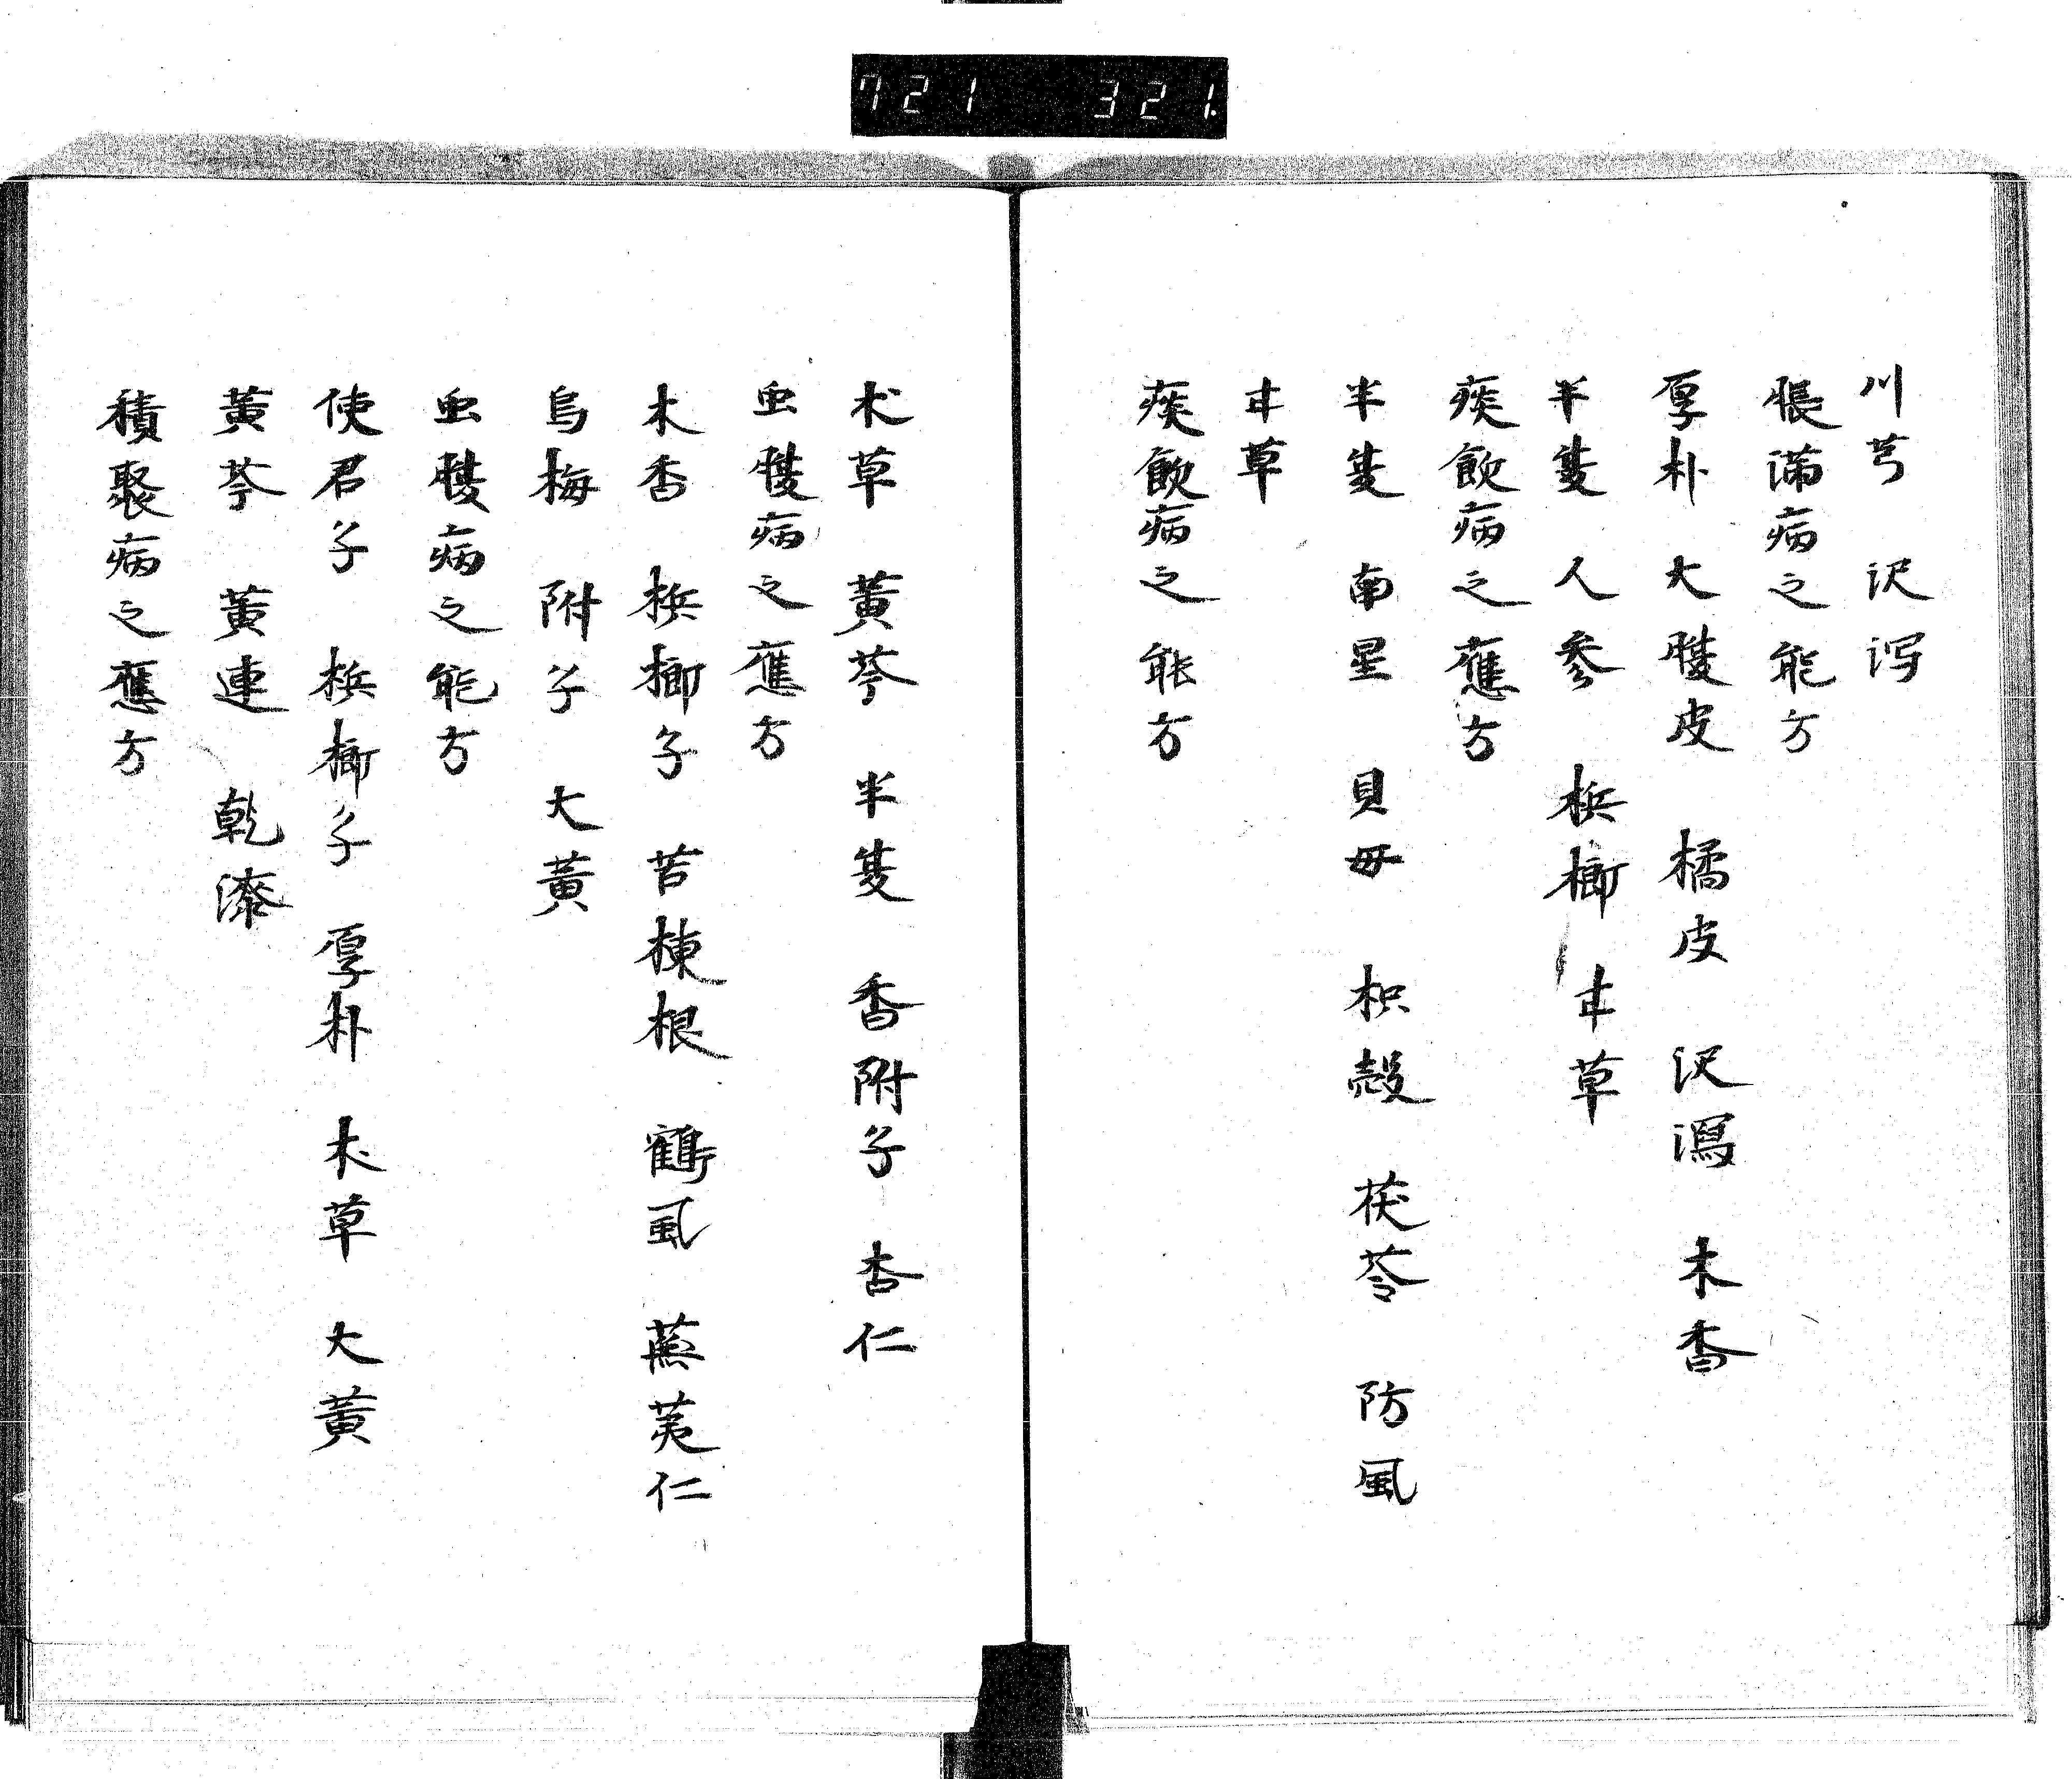 721 321.
川芎 沢泻
脹満病之能方
厚朴 大腹皮 橘皮 沢瀉 木香
半夏 人参 梹榔 甘草
痰飲病之應方
半夏 南星 貝母 枳殻 茯苓 防風
甘草
痰飲病之能方
术草 黄芩 半夏 香附子 杏仁
虫腹病之應方
木香 梹榔子 苦楝根 鶴虱 蕪荑仁
烏梅 附子 大黄
虫腹病之能方
使君子 梹榔子 厚朴 术草 大黄
黄芩 黄連 乾漆
積聚病之應方